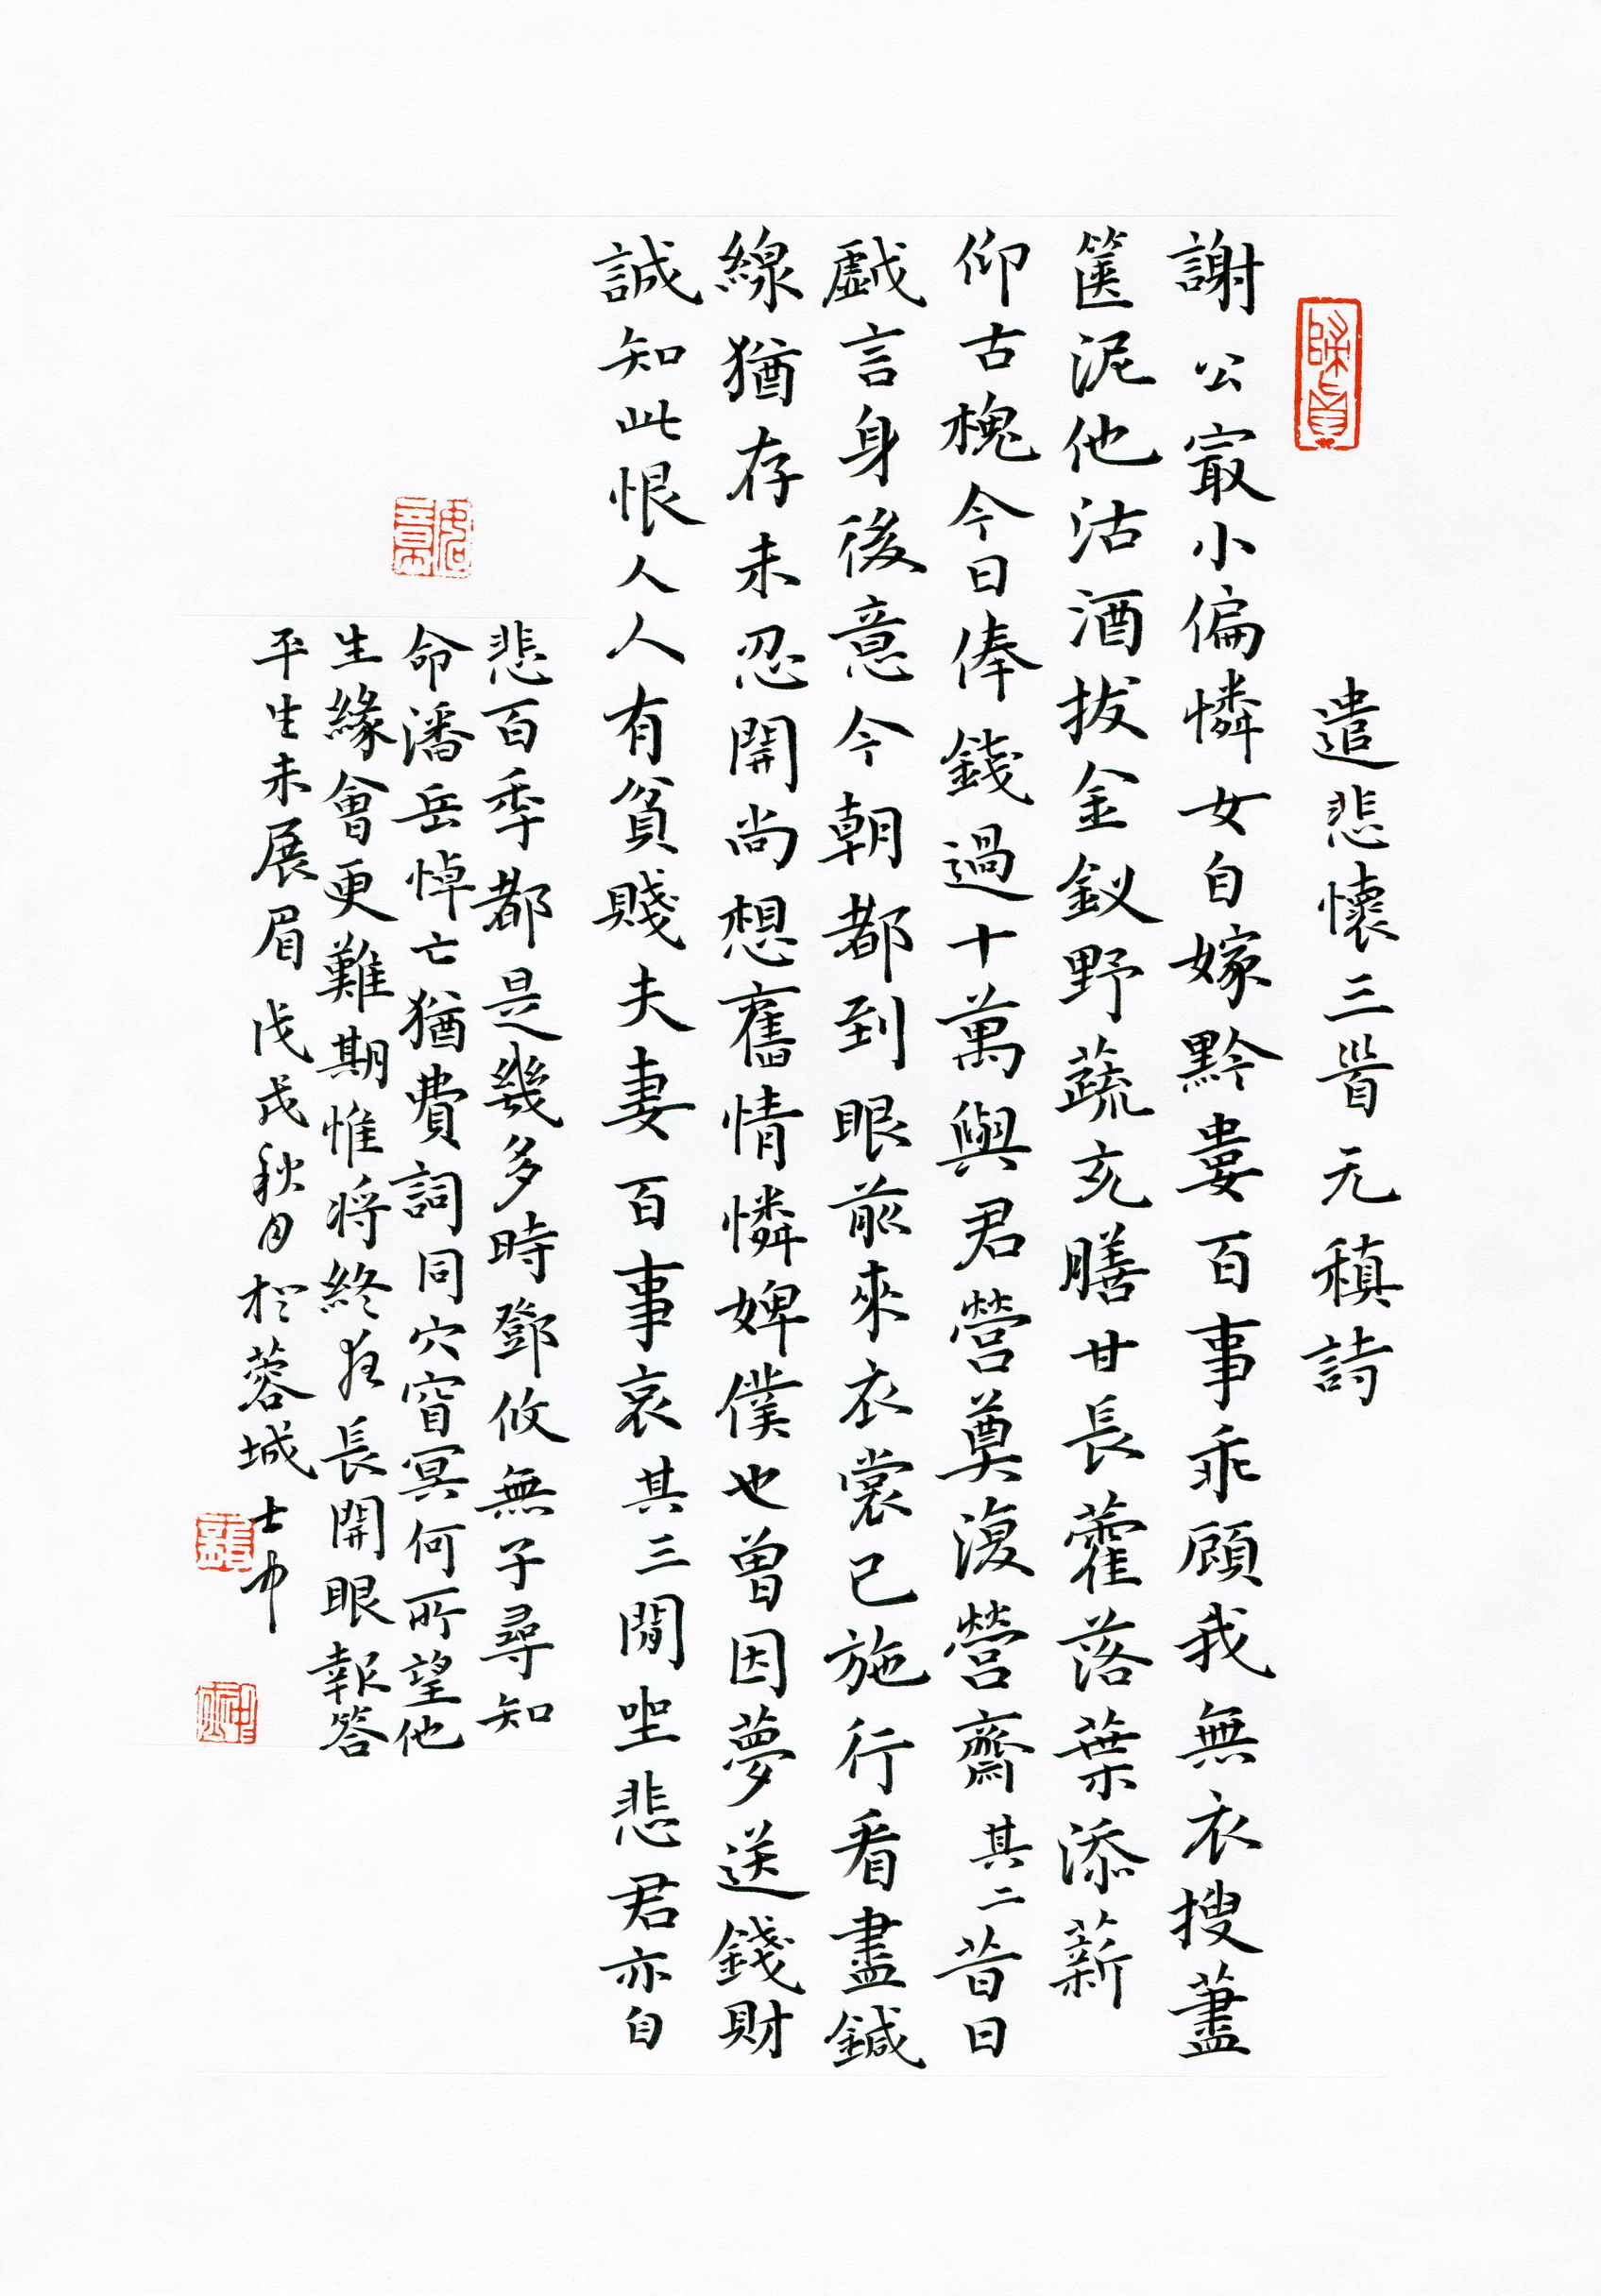 遣悲懷三首元稹詩
謝公冣小偏憐女自嫁黔婁百事乖顧我無衣搜藎
篋泥他沽酒拔金釵野蔬充膳甘長藿落葉添薪
仰古槐今日俸錢過十萬與君營奠復營齋其二昔日
戲言身後意今朝都到眼前來衣裳已施行看盡鍼
線猶存未忍開尚想舊情憐婢僕也曾因夢送錢財
誠知此恨人人有貧賤夫妻百事哀其三閒坐悲君亦自
悲百季都是幾多時鄧攸無子尋知
命潘岳悼亡猶費詞同穴窅冥何所望他
生緣會更難期惟將終夜長開眼報答
平生未展眉戊戌秋月於蓉城士中